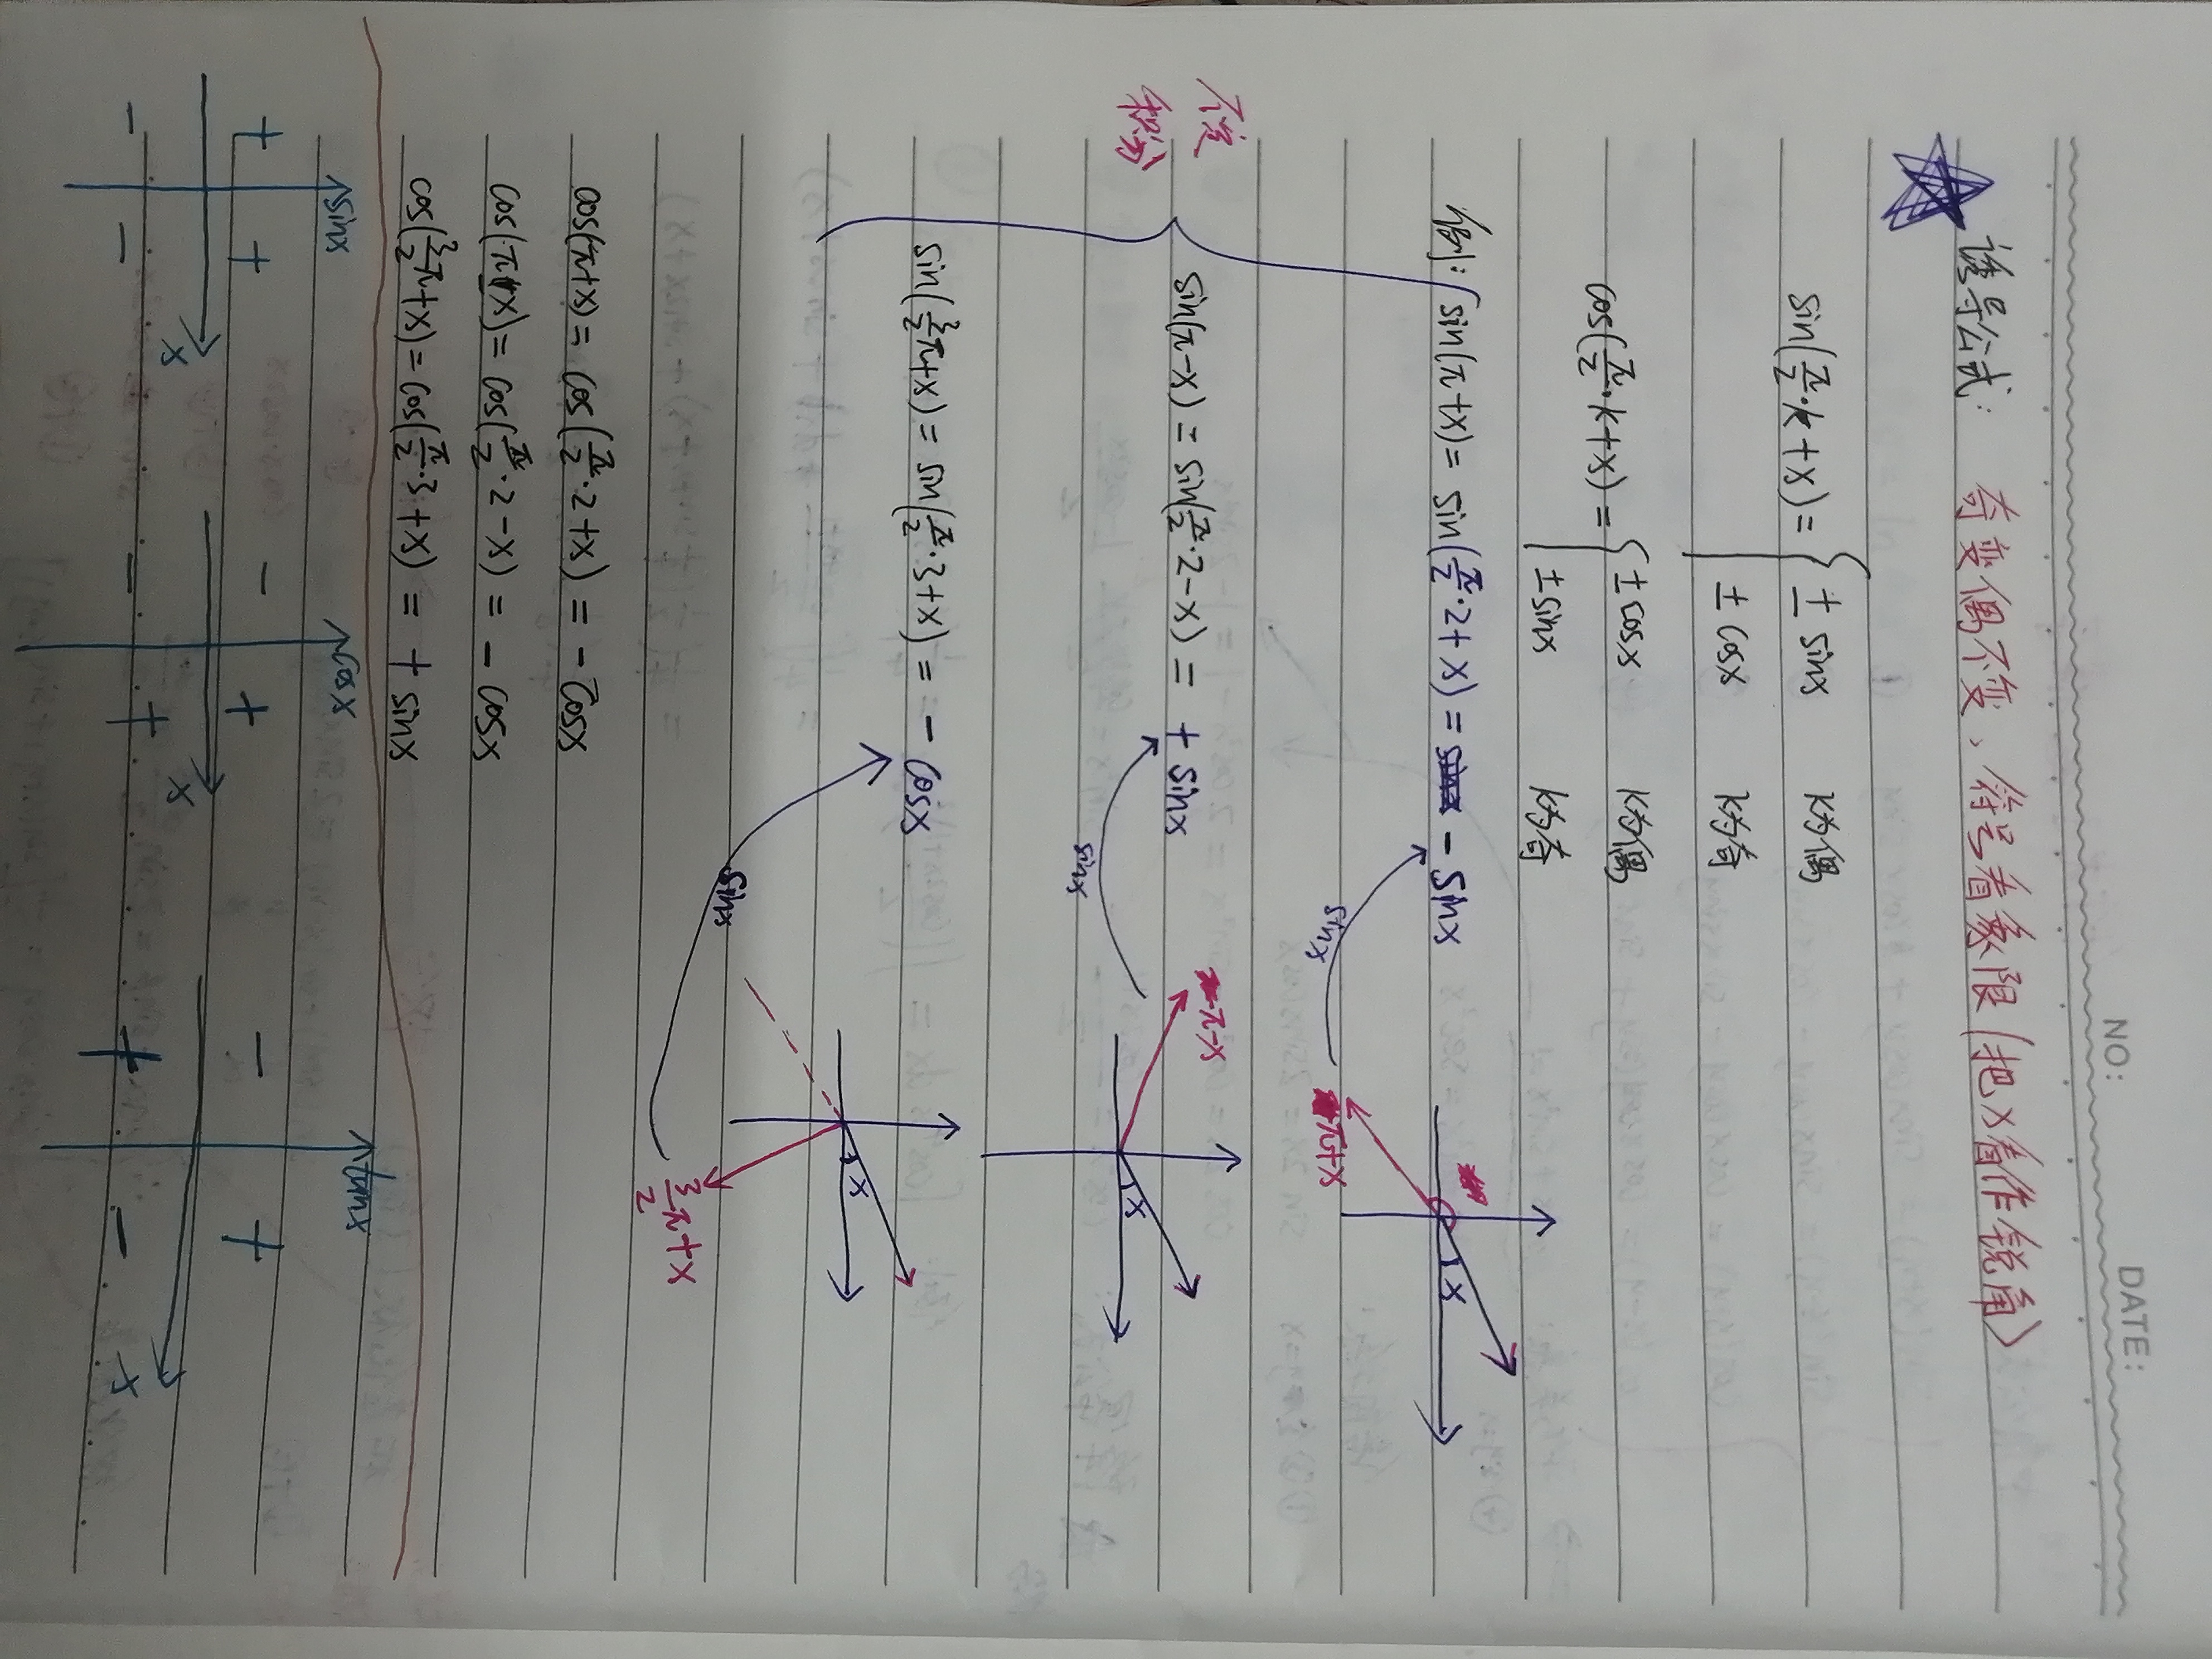 NO:
DATE:
诱导公式: 奇变偶不变、符号看象限(把x看作锐角)
sin(π/2·k+x) = { ± sinx k为偶
± cosx k为奇
cos(π/2·k+x) = { ± cosx k为偶
± sinx k为奇
例: sin(π+x) = sin(π/2·2+x) = - sinx
x
π+x
sinx
不定
积分
sin(π-x) = sin(π/2·2-x) = + sinx
π-x
x
sinx
sin(3/2π+x) = sin(π/2·3+x) = - cosx
x
3/2π+x
sinx
cos(π+x) = cos(π/2·2+x) = - cosx
cos(π-x) = cos(π/2·2-x) = - cosx
cos(3/2π+x) = cos(π/2·3+x) = + sinx
sinx cosx tanx
+ + - + - +
x x x
- - - + + -